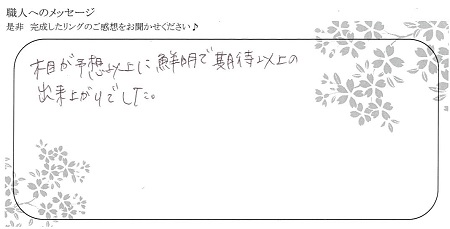 職人へのメッセージ
是非 完成したリングのご感想をお聞かせください♪
木目が予想以上に鮮明で期待以上の
出来上がりでした。